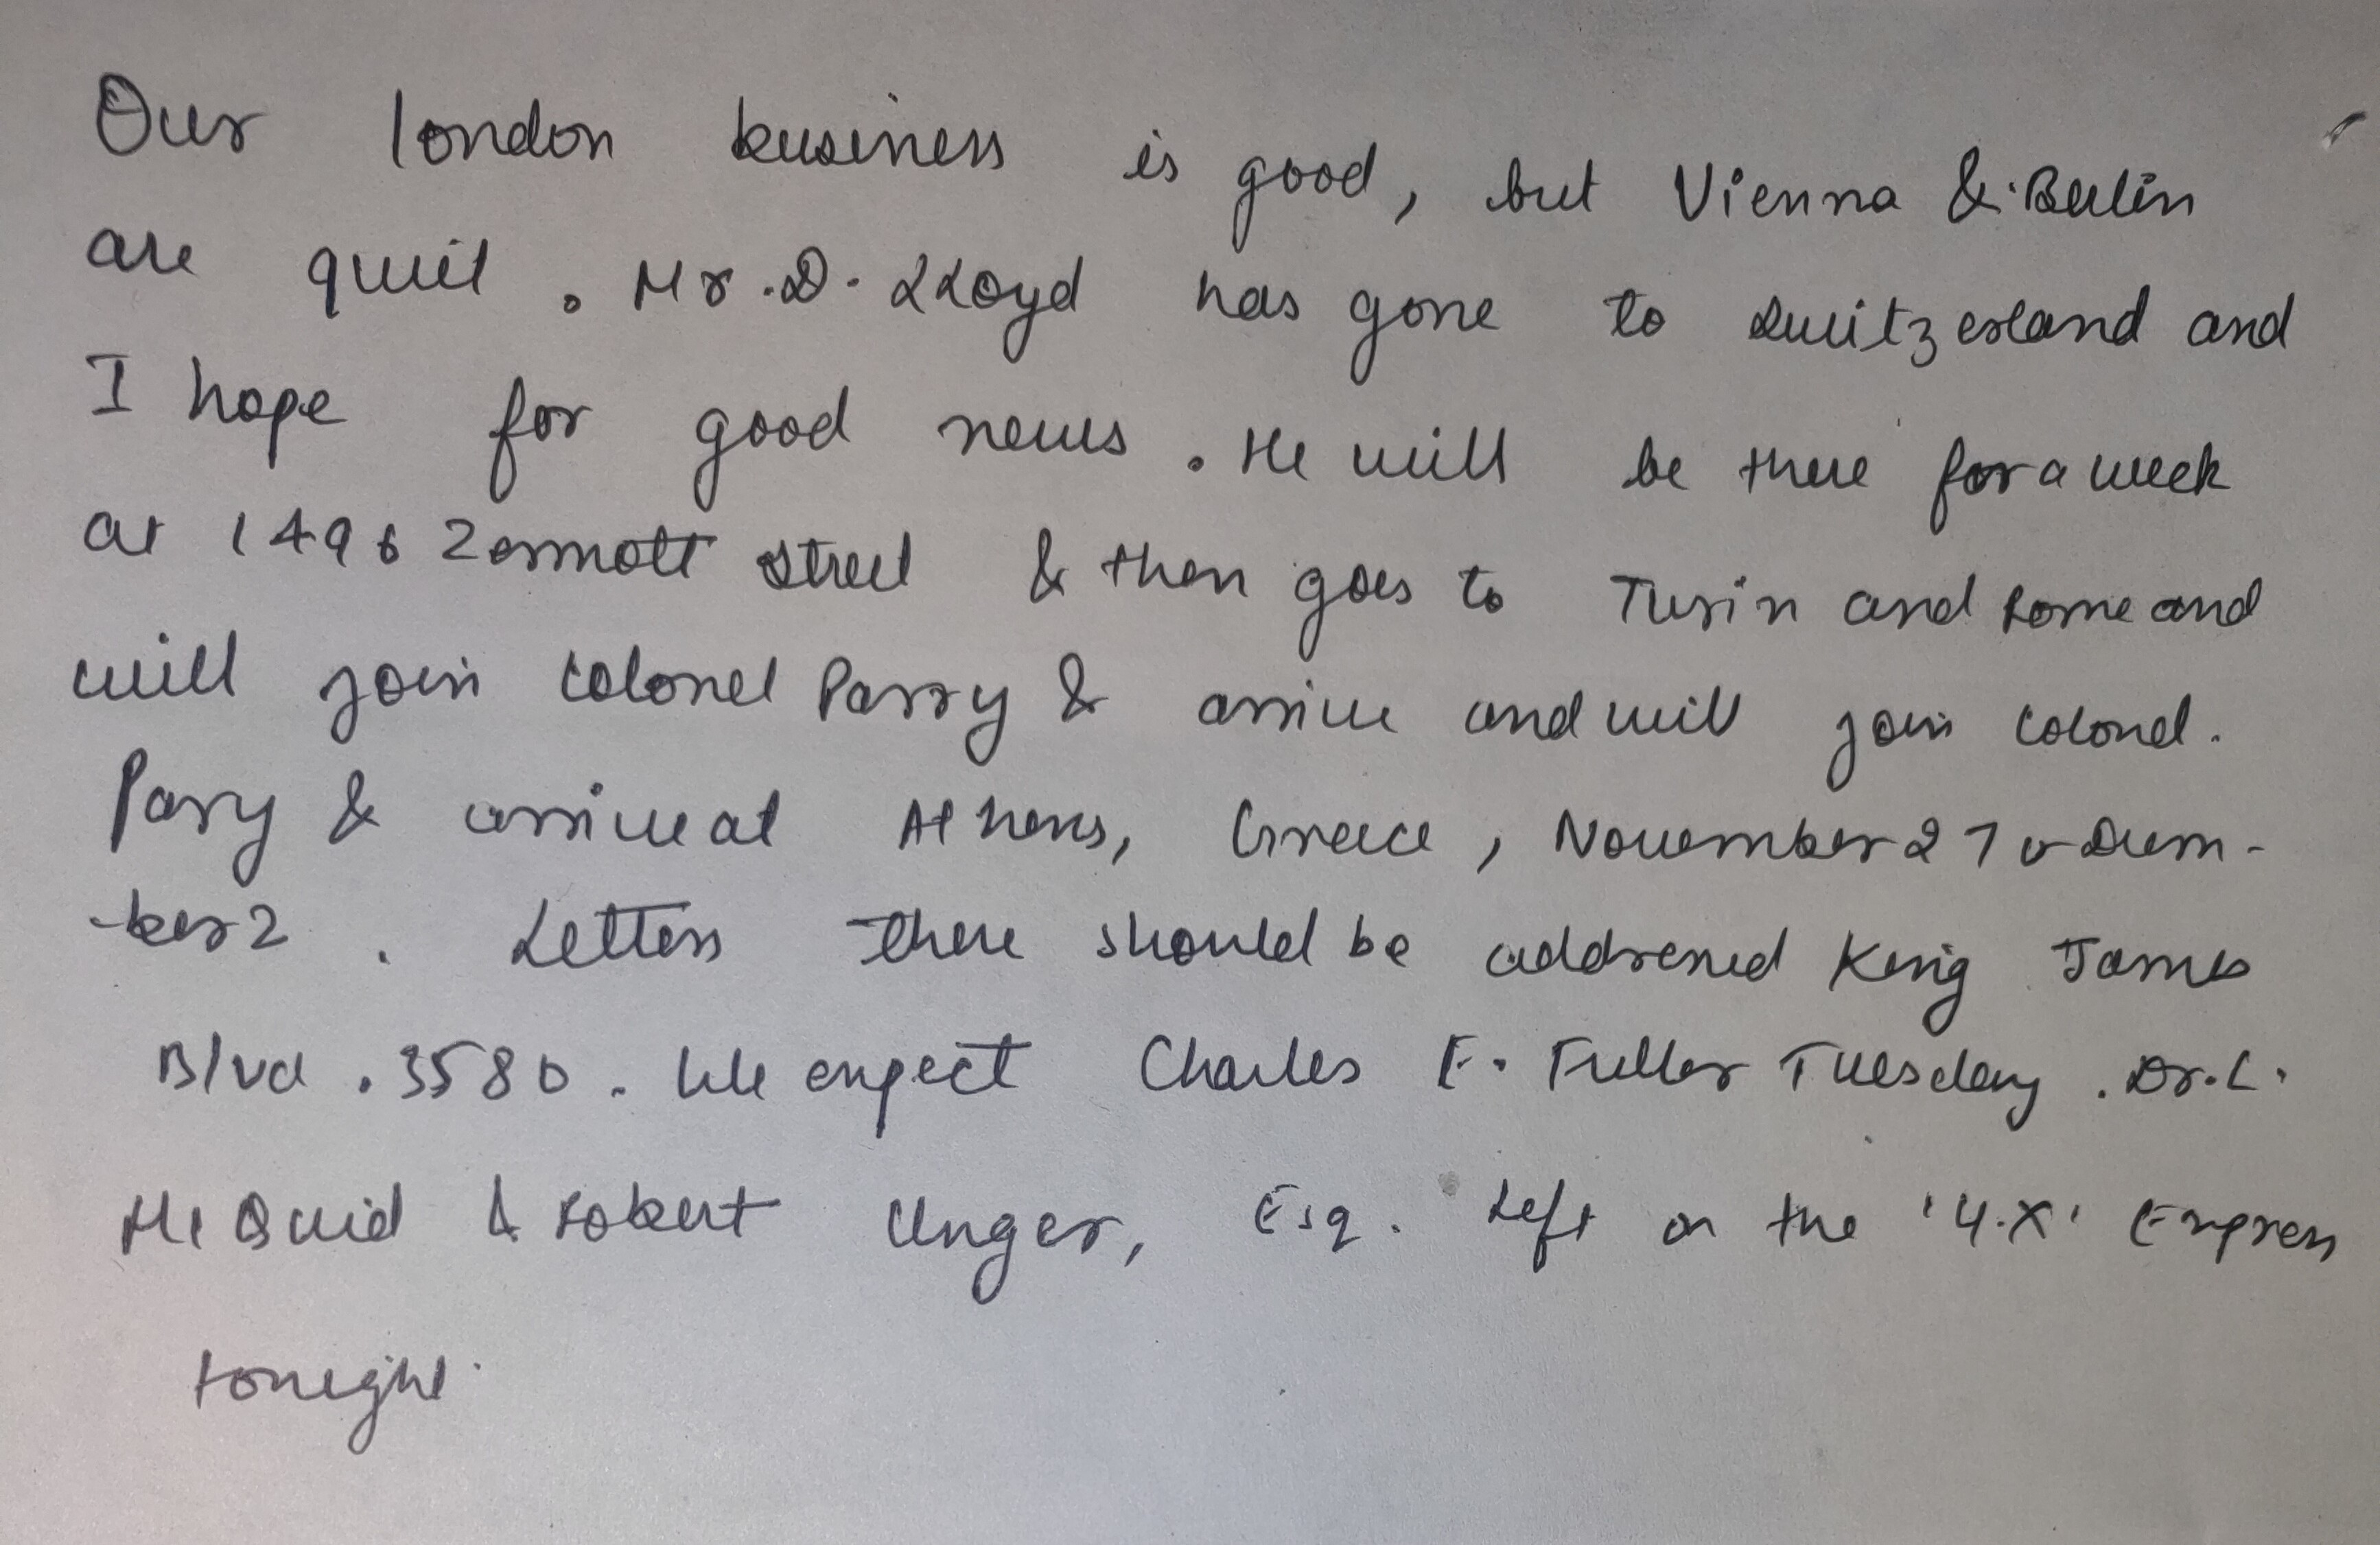 Our london business is good, but Vienna & Berlin
are quiet. Mr. D. LLoyd has gone to Switzerland and
I hope for good news. He will be there for a week
at 1496 Zermott street & then goes to Turin and Rome and
will join Colonel Parry & arrive and will join Colonel.
Parry & arrive at Athens, Greece, November 27 or Decem-
-ber 2. Letters there should be addressed King James
Blvd. 3580. We expect Charles E. Fuller Tuesday. Dr. L.
Mc Quid & Robert Unger, Esq. Left on the '4.X' Express
tonight.